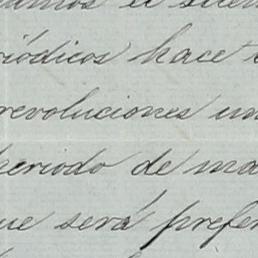 riódicos hace
revoluciones un
periodo de ma
ue será prefer